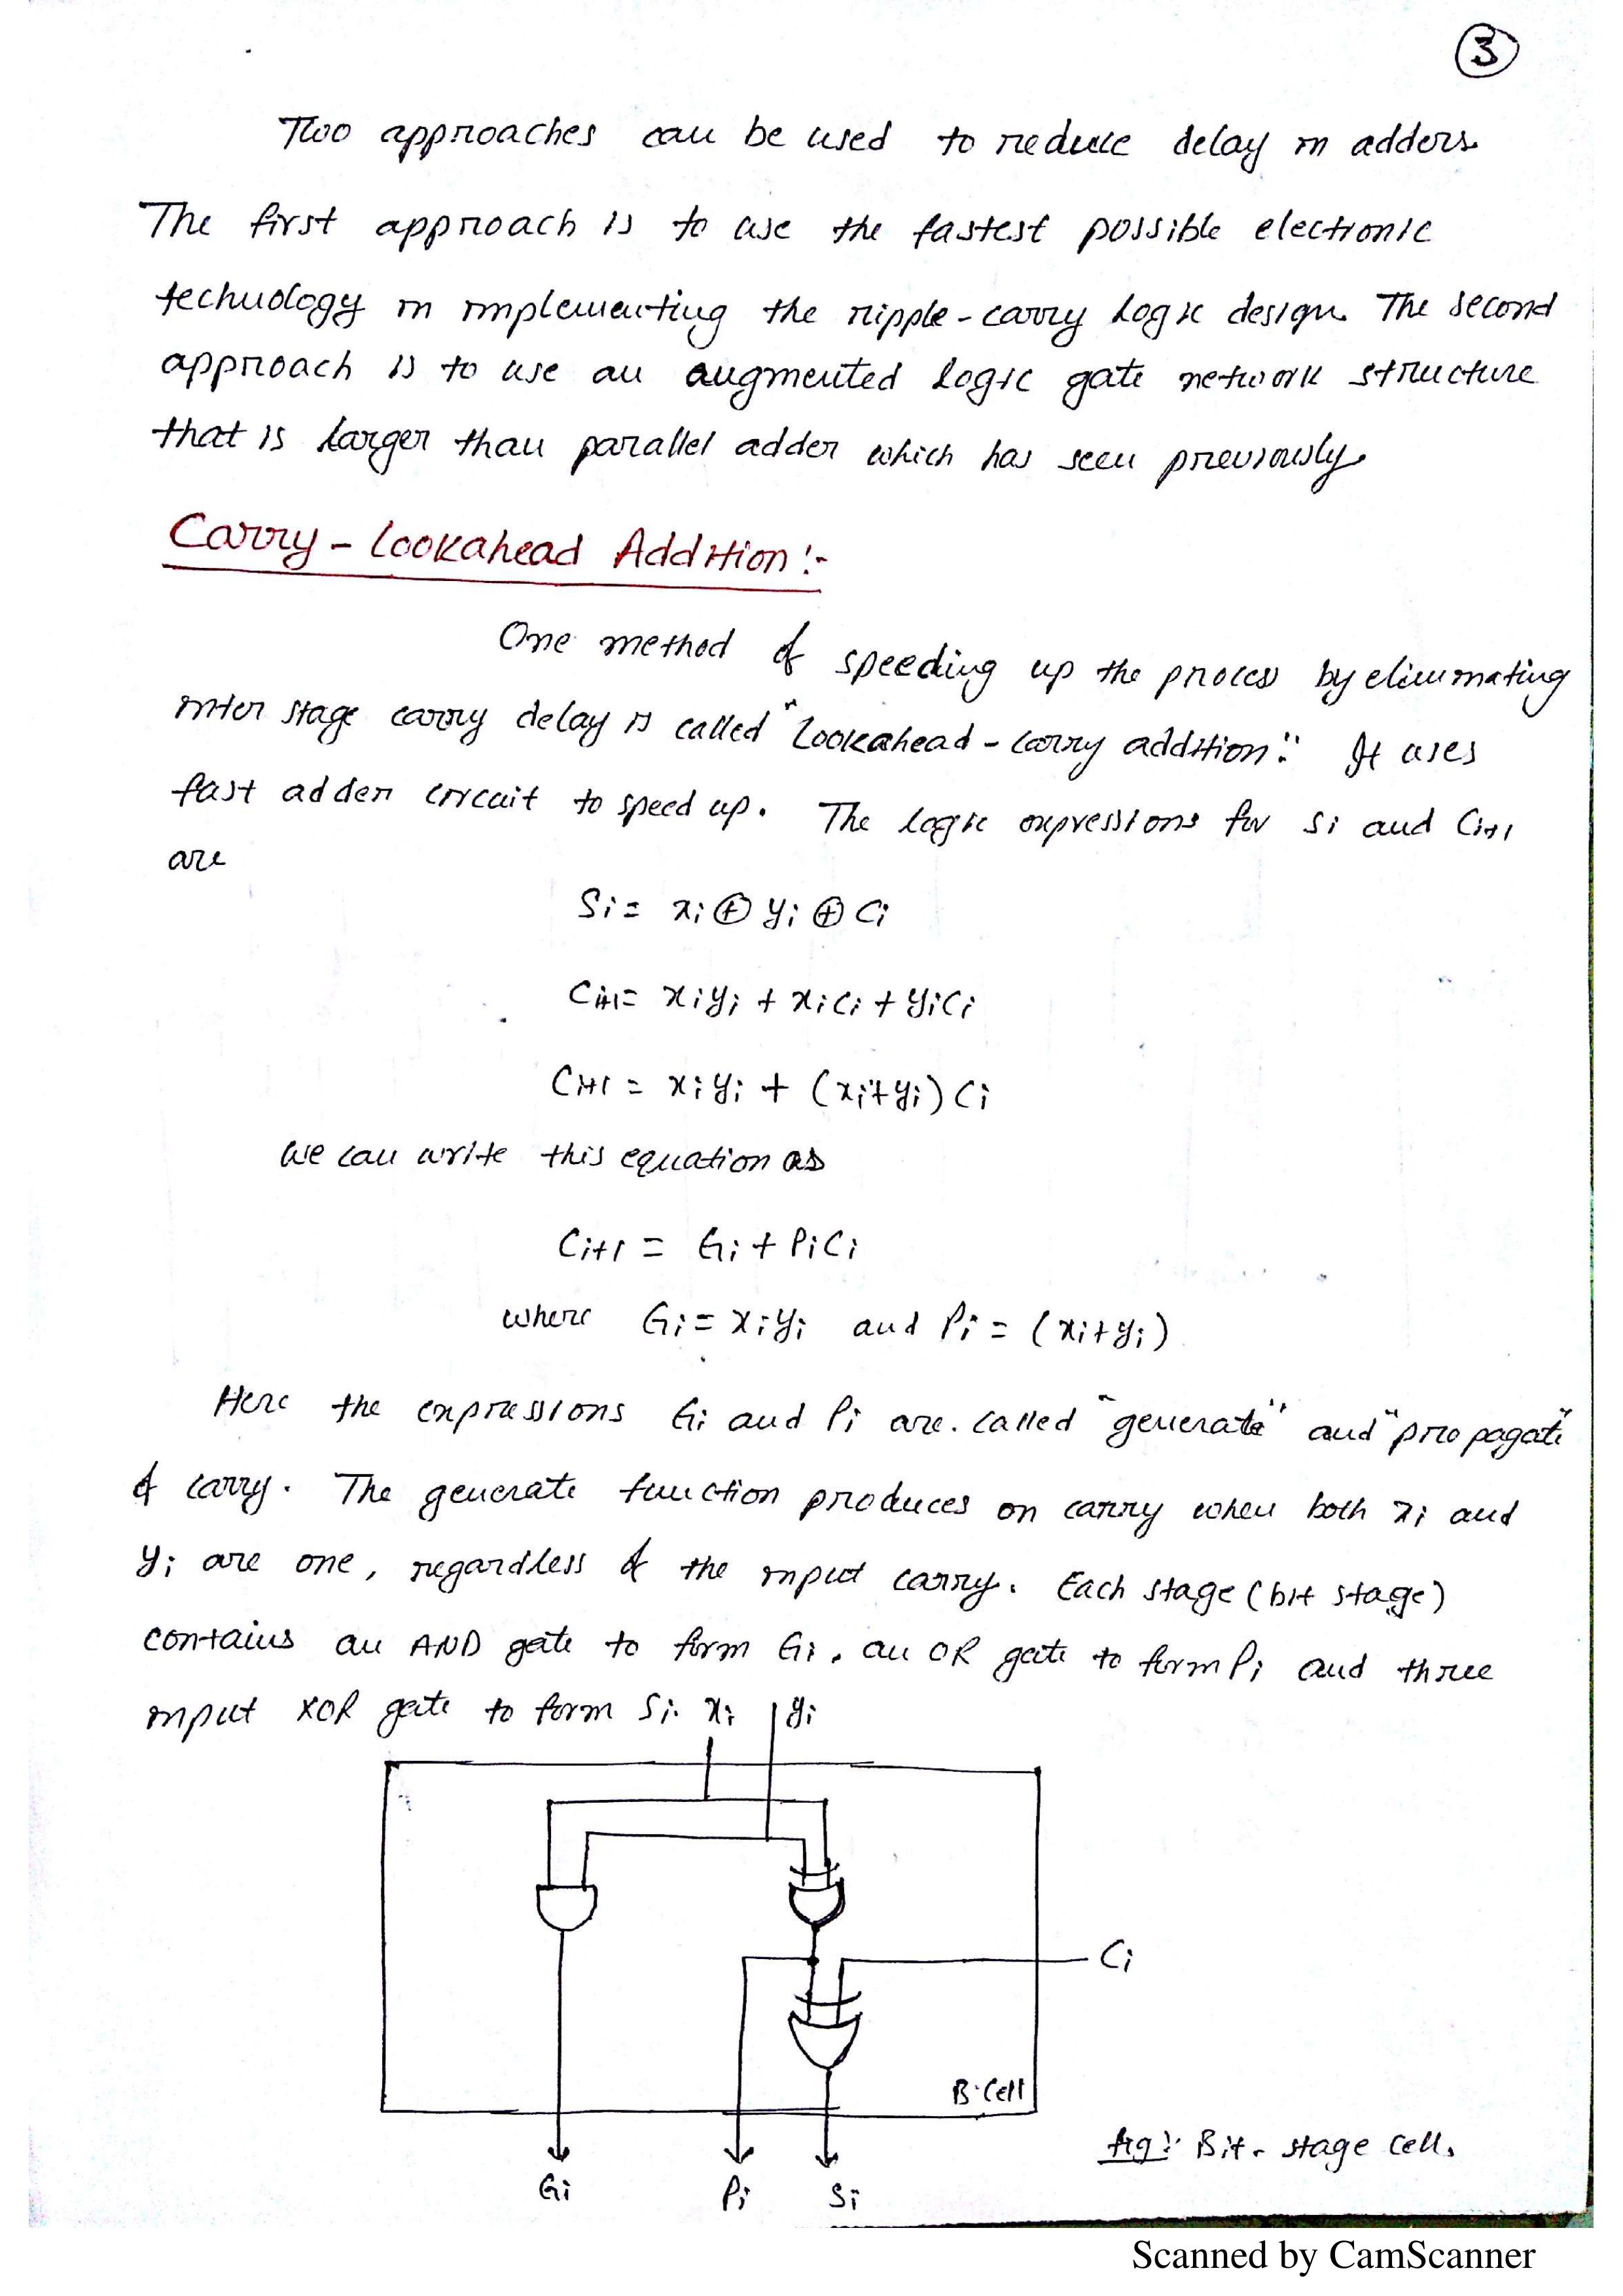 3
Two approaches can be used to reduce delay in adders.
The first approach is to use the fastest possible electronic
technology in implementing the ripple-carry logic design. The second
approach is to use an augmented logic gate network structure
that is larger than parallel adder which has seen previously.
Carry-Lookahead Addition:-
One method of speeding up the process by eliminating
inter stage carry delay is called "Lookahead-carry addition". It uses
fast adder circuit to speed up. The logic expressions for Si and Ci+1
are
Si = xi ⊕ yi ⊕ Ci
Ci+1 = xiyi + xiCi + yiCi
Ci+1 = xiyi + (xi+yi) Ci
We can write this equation as
Ci+1 = Gi + PiCi
where Gi = xiyi and Pi = (xi+yi)
Here the expressions Gi and Pi are. called "generate" and "propagate"
of carry. The generate function produces on carry when both xi and
yi are one, regardless of the input carry. Each stage (bit stage)
contains an AND gate to form Gi, an OR gate to form Pi and three
input XOR gate to form Si.
xi yi
Ci
B-Cell
fig:- Bit-stage cell.
Gi Pi Si
Scanned by CamScanner